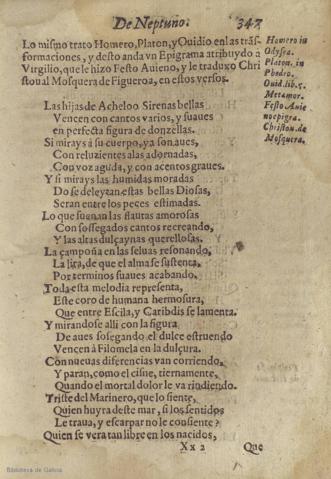 De Neptuno. 347
Lo mismo trato Homero, Platon, y Ouidio en las trãs-
formaciones, y desto anda vn Epigrama atribuydo a
Virgilio, que le hizo Festo Auieno, y le traduxo Chri
stoual Mosquera de Figueroa, en estos versos.
Homero in
Odysea.
Platon. in
Phedro.
Ouid. lib. 5.
Metamor.
Festo Auie
no epigra.
Christou. de
Mosquera.
Las hijas de Acheloo Sirenas bellas
Vencen con cantos varios, y suaues
en perfecta figura de donzellas.
Si mirays à su cuerpo, ya son aues,
Con reluzientes alas adornadas,
Con voz aguda, y con acentos graues.
Y si mirays las humidas moradas
Do se deleytan estas bellas Diosas,
Seran entre los peces estimadas.
Lo que suenan las flautas amorosas
Con sossegados cantos recreando,
Y las altas dulçaynas querellosas.
La campoña en las seluas resonando,
La lira, de que el alma se sustenta,
Por terminos suaues acabando.
Toda esta melodia representa,
Este coro de humana hermosura,
Que entre Escila, y Caribdis se lamenta.
Y mirandose alli con la figura
De aues sosegando el dulce estruendo
Vencen à Filomela en la dulçura.
Con nueuas diferencias van corriendo,
Y paran, como el cisne, tiernamente,
Quando el mortal dolor le va rindiendo.
Triste del Marinero, que lo siente,
Quien huyra deste mar, si los sentidos
Le traua, y escarpar no le consiente?
Quien se vera tan libre en los nacidos,
Xx 2 Que
Biblioteca de Galicia